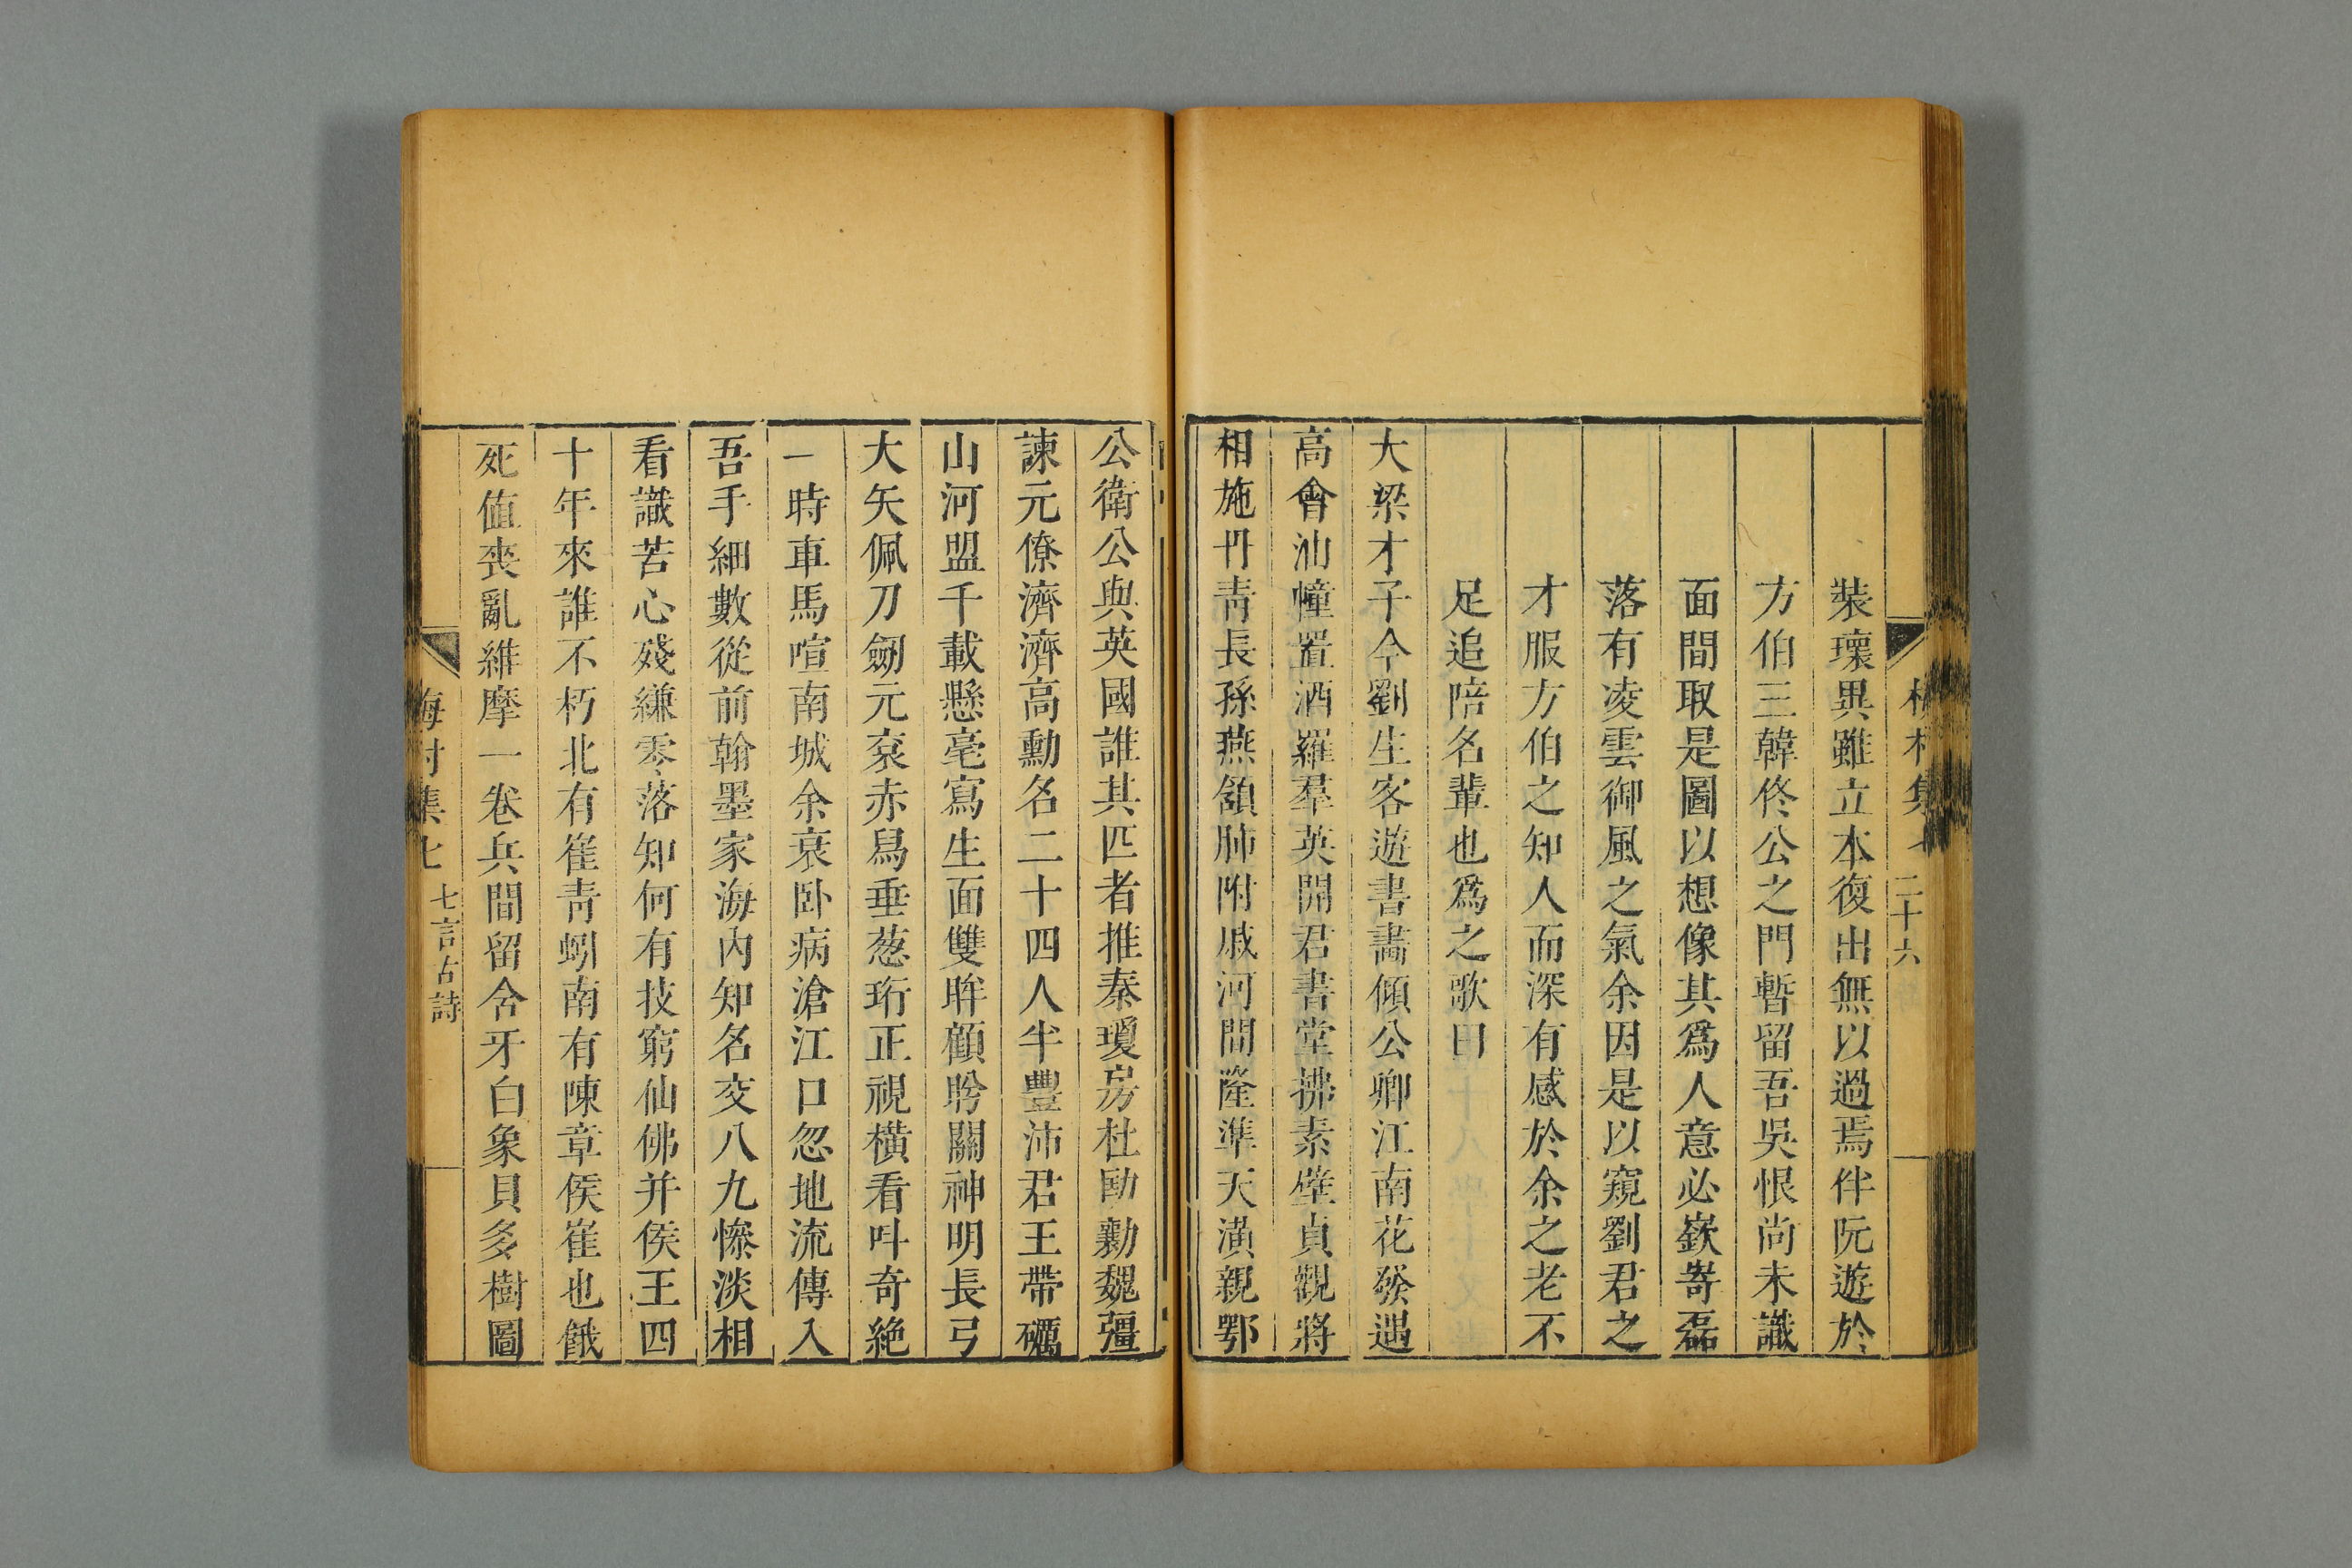 梅村集
二十六
裝瓌異雖立本復出無以過焉伴阮遊於
方伯三韓佟公之門暫留吾吳恨尚未識
面間取是圖以想像其爲人意必嶔嵜磊
落有凌雲御風之氣余因是以窺劉君之
才服方伯之知人而深有感於余之老不
足追陪名輩也爲之歌曰
大梁才子今劉生客遊書畵傾公卿江南花發遇
高會油幢置酒羅羣英開君書堂拂素壁貞觀將
相施丹青長孫燕頷肺附戚河間隆準天潢親鄂
公衛公與英國誰其匹者推秦瓊房杜勛勳魏彊
諫元僚濟濟高勳名二十四人半豐沛君王帶礪
山河盟千載懸毫寫生面雙眸顧盼關神明長弓
大矢佩刀劒元衮赤舄垂葱珩正視橫看呌奇絶
一時車馬喧南城余衰卧病滄江口忽地流傳入
吾手細數從前翰墨家海内知名交八九慘淡相
看識苦心殘縑零落知何有技窮仙佛并侯王四
十年來誰不朽北有崔青蚓南有陳章侯崔也餓
死值喪亂維摩一卷兵間留含牙白象貝多樹圖
梅村集七
七言古詩